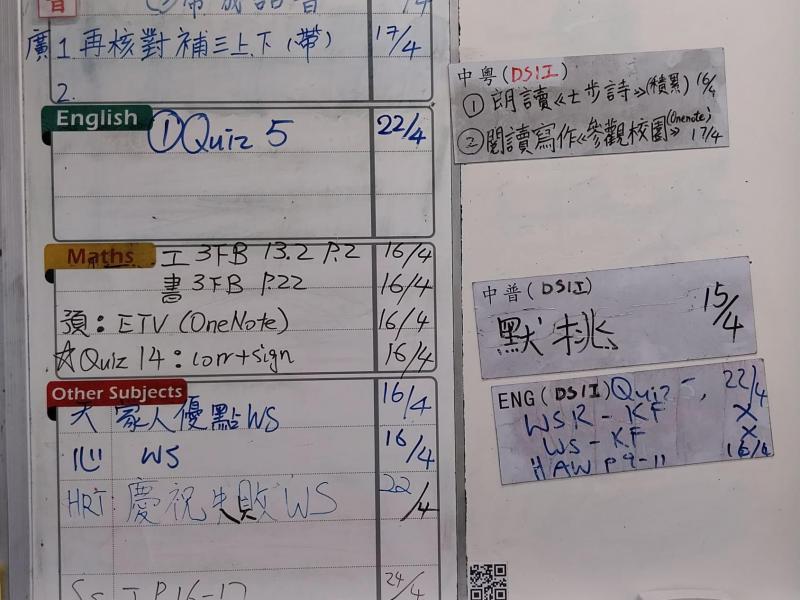 普 常識 14
廣 1 再核對補三上下(帶) 17/4
2.
English ① Quiz 5 22/4
Maths 工 3下B 13.2 P.2 16/4
書 3下B P.22 16/4
預：ETV (OneNote) 16/4
☆Quiz 14：corr+sign 16/4
Other Subjects
天 家人優點WS 16/4
心 WS 16/4
HRT 慶祝失敗WS 22/4
P.16-17 24/4
中粵(DSII)
① 朗讀《七步詩》(積累) 16/4
② 閱讀寫作《參觀校園》(Onenote) 17/4
中普(DSII)
默挑 15/4
ENG (DSII) Quiz 5, 22/4
WSR - KF X
WS - KF X
HAW P9-11 16/4